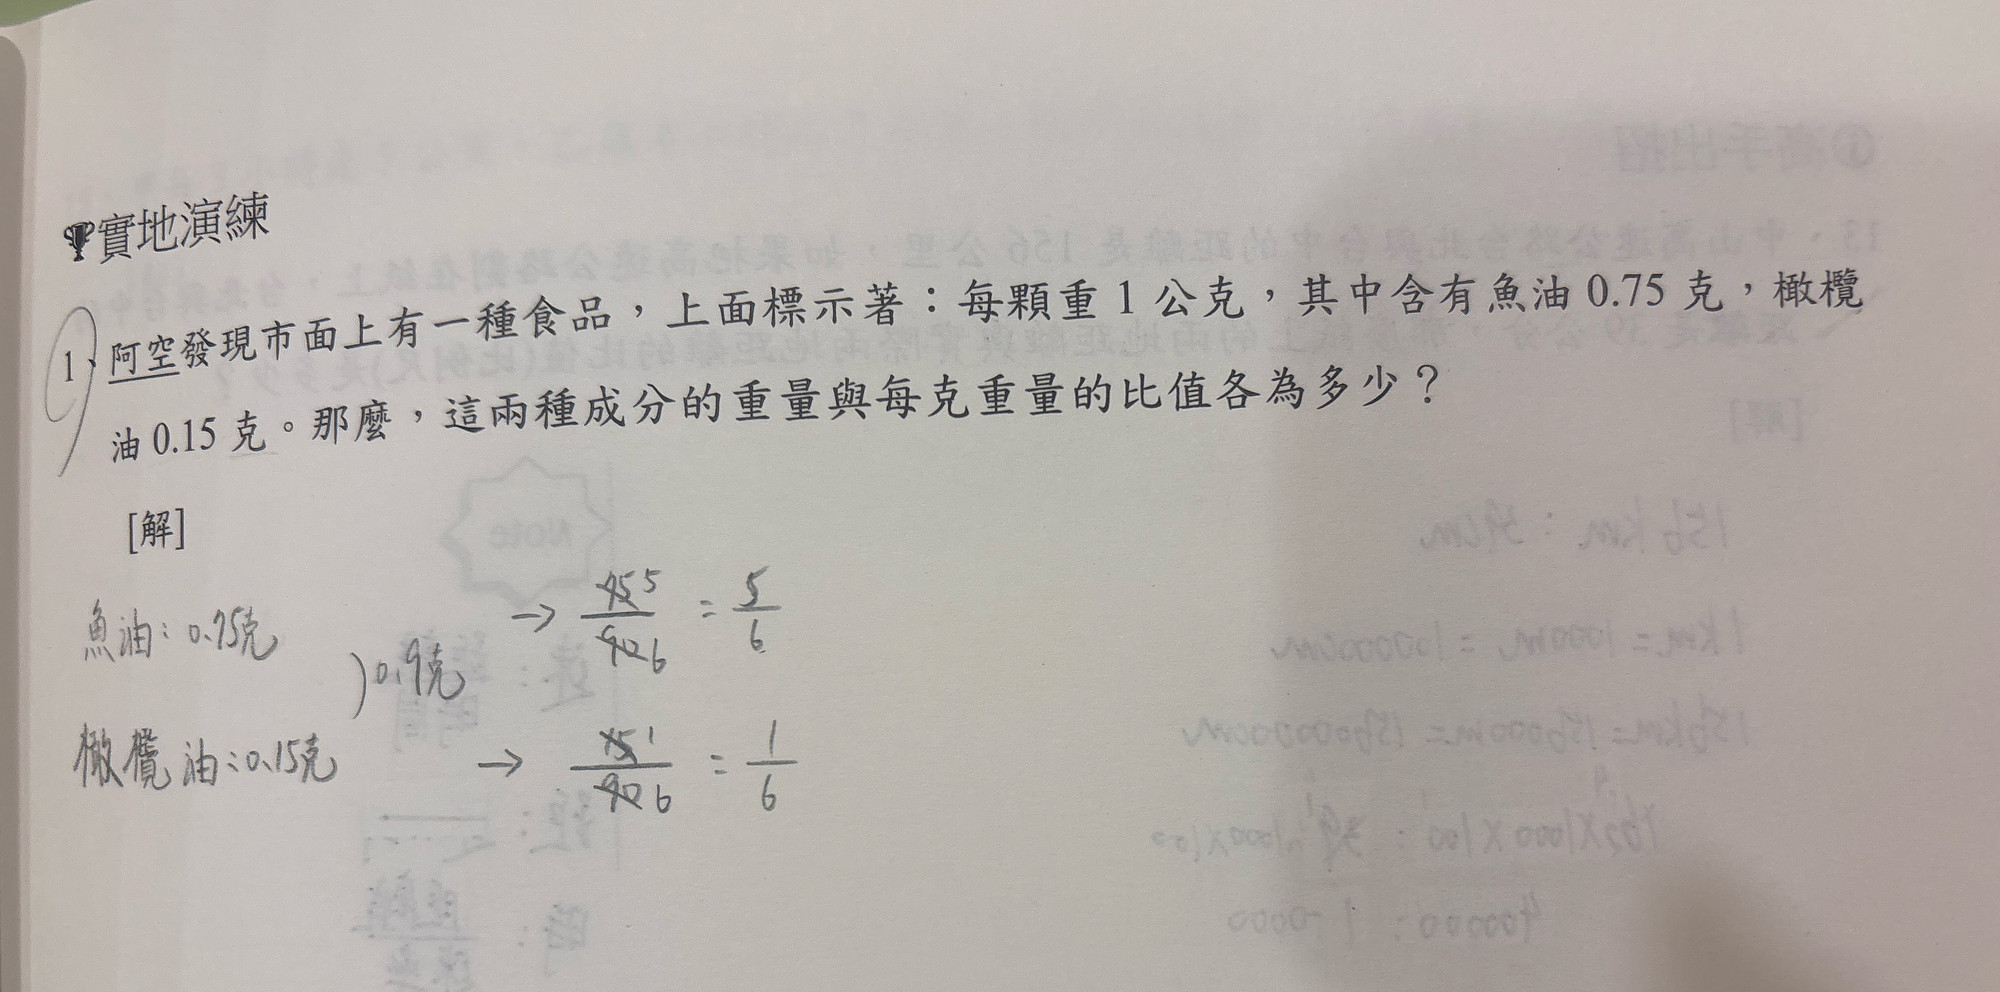 實地演練
1、阿空發現市面上有一種食品，上面標示著：每顆重 1 公克，其中含有魚油 0.75 克，橄欖
油 0.15 克。那麼，這兩種成分的重量與每克重量的比值各為多少？
[解]
魚油：0.75克 → 75 5/90 6 = 5/6
)0.9克
橄欖油：0.15克 → 15 1/90 6 = 1/6